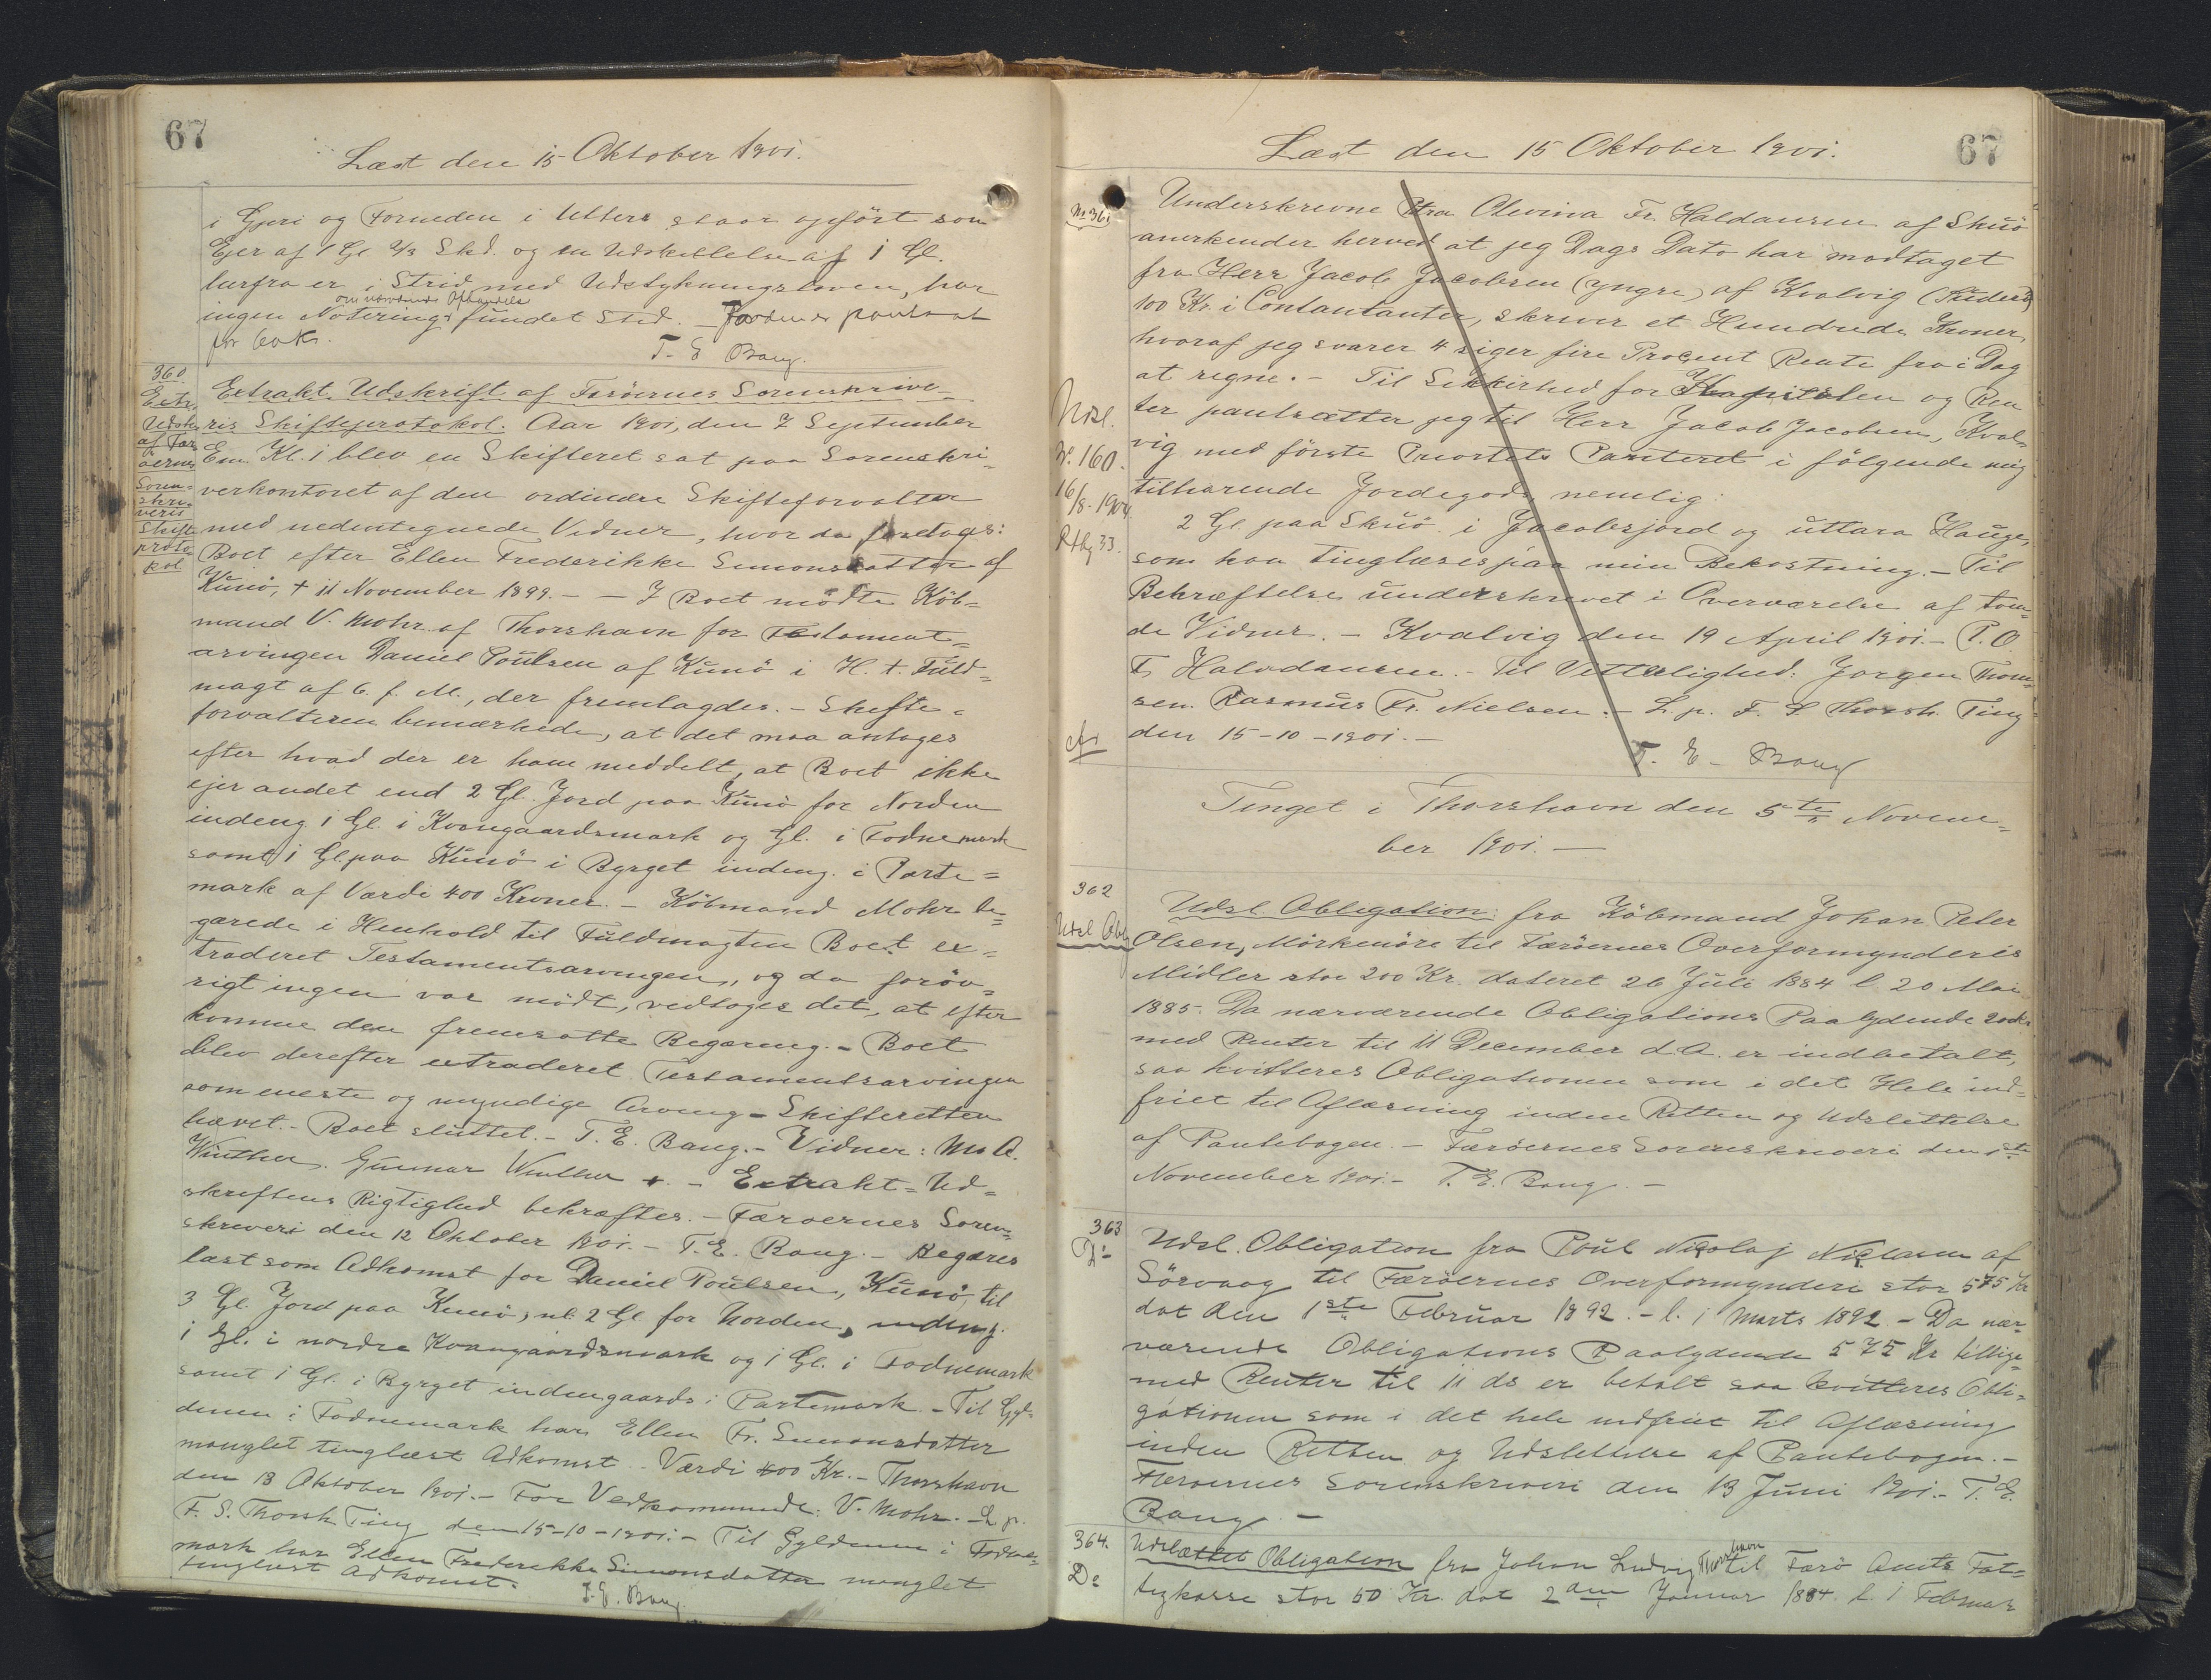 67
Læst den 15 Oktober 1901.
i Gjeri og Forneden i Uttere staar opført som
Ejer af 1 Gl 2/3 Skd. og en Udskillelse af 1 Gl.
herfra er i Strid med Udstykningsloven, har
om nærværende Afhændelse
ingen Notering fundet Sted. – Jorden er pantsat
for 60 Kr.
T. E Bang.
360
Extr.
Udskr
af Fær
öernes
Soren=
skri=
veris
Skifte
proto=
kol
Extrakt Udskrift af Færöernes Sorenskrive=
ris Skifteprotokol. Aar 1901, den 7 September
Em. Kl. 1 blev en Skifteret sat paa Sorenskri=
verkontoret af den ordinære Skifteforvalter
med nedentegnede Vidner, hvor da foretoges:
Boet efter Ellen Frederikke Simonsdatter af
Kunö, + 11 November 1899. – – I Boet mödte Köb=
mand V. Mohr af Thorshavn for Testament=
arvingen Daniel Poulsen af Kunö i H. t. Fuld=
magt af 6. f. M., der fremlagdes. – Skifte=
forvalteren bemærkede, at det maa antages
efter hvad der er ham meddelt, at Boet ikke
ejer andet end 2 Gl. Jord paa Kunö for Norden
indeng. 1 Gl. i Kvangaardsmark og Gl. i Fodnemark
samt 1 Gl. paa Kunö i Byrget indeng. i Parte=
mark af Værdi 400 Kroner. – Köbmand Mohr be=
gærede i Henhold til Fuldmagten Boet ex=
traderet Testamentsarvingen, og da foröv=
rigt ingen var mödt, vedtoges det, at efter
komme den fremsatte Begæring. – Boet
blev derefter extraderet Testamentsarvingen
som eneste og myndige Arving – Skifteretten
hævet. – Boet sluttet. – T. E. Bang. – Vidner: M. A.
Winther. Gunnar Winther +. – Extrakt=Ud=
skriftens Rigtighed bekræftes. – Færoernes Soren=
skriveri den 12 Oktober 1901. – T. E. Bang. – Begæres
læst som Adkomst for Daniel Poulsen, Kunö, til
3 Gl. Jord paa Kunö, nl. 2 Gl for Norden, indeng.
1 Gl. i nordre Kvangaardsmark og 1 Gl. i Fodnemark
samt 1 Gl. i Byrget indengaards i Partemark. – Til Gyl=
denen i Fodnemark har Ellen Fr. Simonsdatter
manglet tinglæst Adkomst. – Værdi 400 Kr. – Thorshavn
den 13 Oktober 1901. – For Vedkommende: V. Mohr. – L. p.
F. S. Thorsh. Ting den 15-10-1901. – Til Gyldenen i Fodne=
mark har Ellen Frederikke Simonsdatter manglet
tinglæst Adkomst.
T. E. Bang
67
Læst den 15 Oktober 1901.
No 361
Underskrevne Petra Olevina Fr. Haldansen af Skuö
anerkender herved at jeg Dags Dato har modtaget
fra Herr Jacob Jacobsen (yngre) af Kvalvig
100 Kr. i Contantanter, skriver et Hundrede Kroner,
hvoraf jeg svarer 4 siger fire Procent Rente fra i Dag
at regne. – Til Sikkerhed for Kapitalen og Ren
ter pantsætter jeg til Herr Jacob Jacobsen, Kval=
vig med förste Prioritets Panteret i fölgende mig
tilhörende Jordegods nemlig:
Udsl.
No. 160.
16/8. 1904
Ptbg 33.
2 Gl. paa Skuö i Jacobsjord og uttara Hauge,
som kan tinglæses paa min Bekostning. – Til
Bekræftelse underskrevet i Overværelse af tven=
de Vidner. – Kvalvig den 19 April 1901. – P. O.
F. Halvdansen. – Til Vitterlighed: Jorgen Thom=
sen. Rasmus Fr. Nielsen. – L. p. F. S Thorsh. Ting
den 15-10-1901. –
T. E. Bang
Tinget i Thorshavn den 5te Novem=
ber 1901. –
362
Udsl Obl
Udsl. Obligation: fra Köbmand Johan Peter
Olsen, Mörkenöre til Færöernes Overformynderis
Midler stor 200 Kr. dateret 26 Juli 1884 l. 20 Mai
1885. Da nærværende Obligations Paalydende 200 Kr
med Renter til 11 December d. A. er indbetalt,
saa kvitteres Obligationen som i det Hele ind=
friet til Aflæsning inden Retten og Udslettelse
af Pantebogen. – Færöernes Sorenskriveri den 1ste
November 1901. – T. E. Bang. –
363
Do
Udsl. Obligation fra Poul Nicolaj Niclasen af
Sörvaag til Færöernes Overformynderi stor 575 Kr
dat den 1ste Februar 1892. – l. 1 Marts 1892 – Da nær=
værende Obligations Paalydende 575 Kr tillige=
med Renter til 11 ds er betalt saa kvitteres Obli=
gationen som i det hele indfriet til Aflæsning
inden Retten og Udslettelse af Pantebogen. –
Færoernes Sorenskriveri den 13 Juni 1901. – T. E.
Bang. –
364.
Do
Udslettet Obligation fra Johan Ludvig Thorshavn til Færö Amts Fat=
tigkasse stor 50 Kr. dat 2den Januar 1884. l. 1 Februar